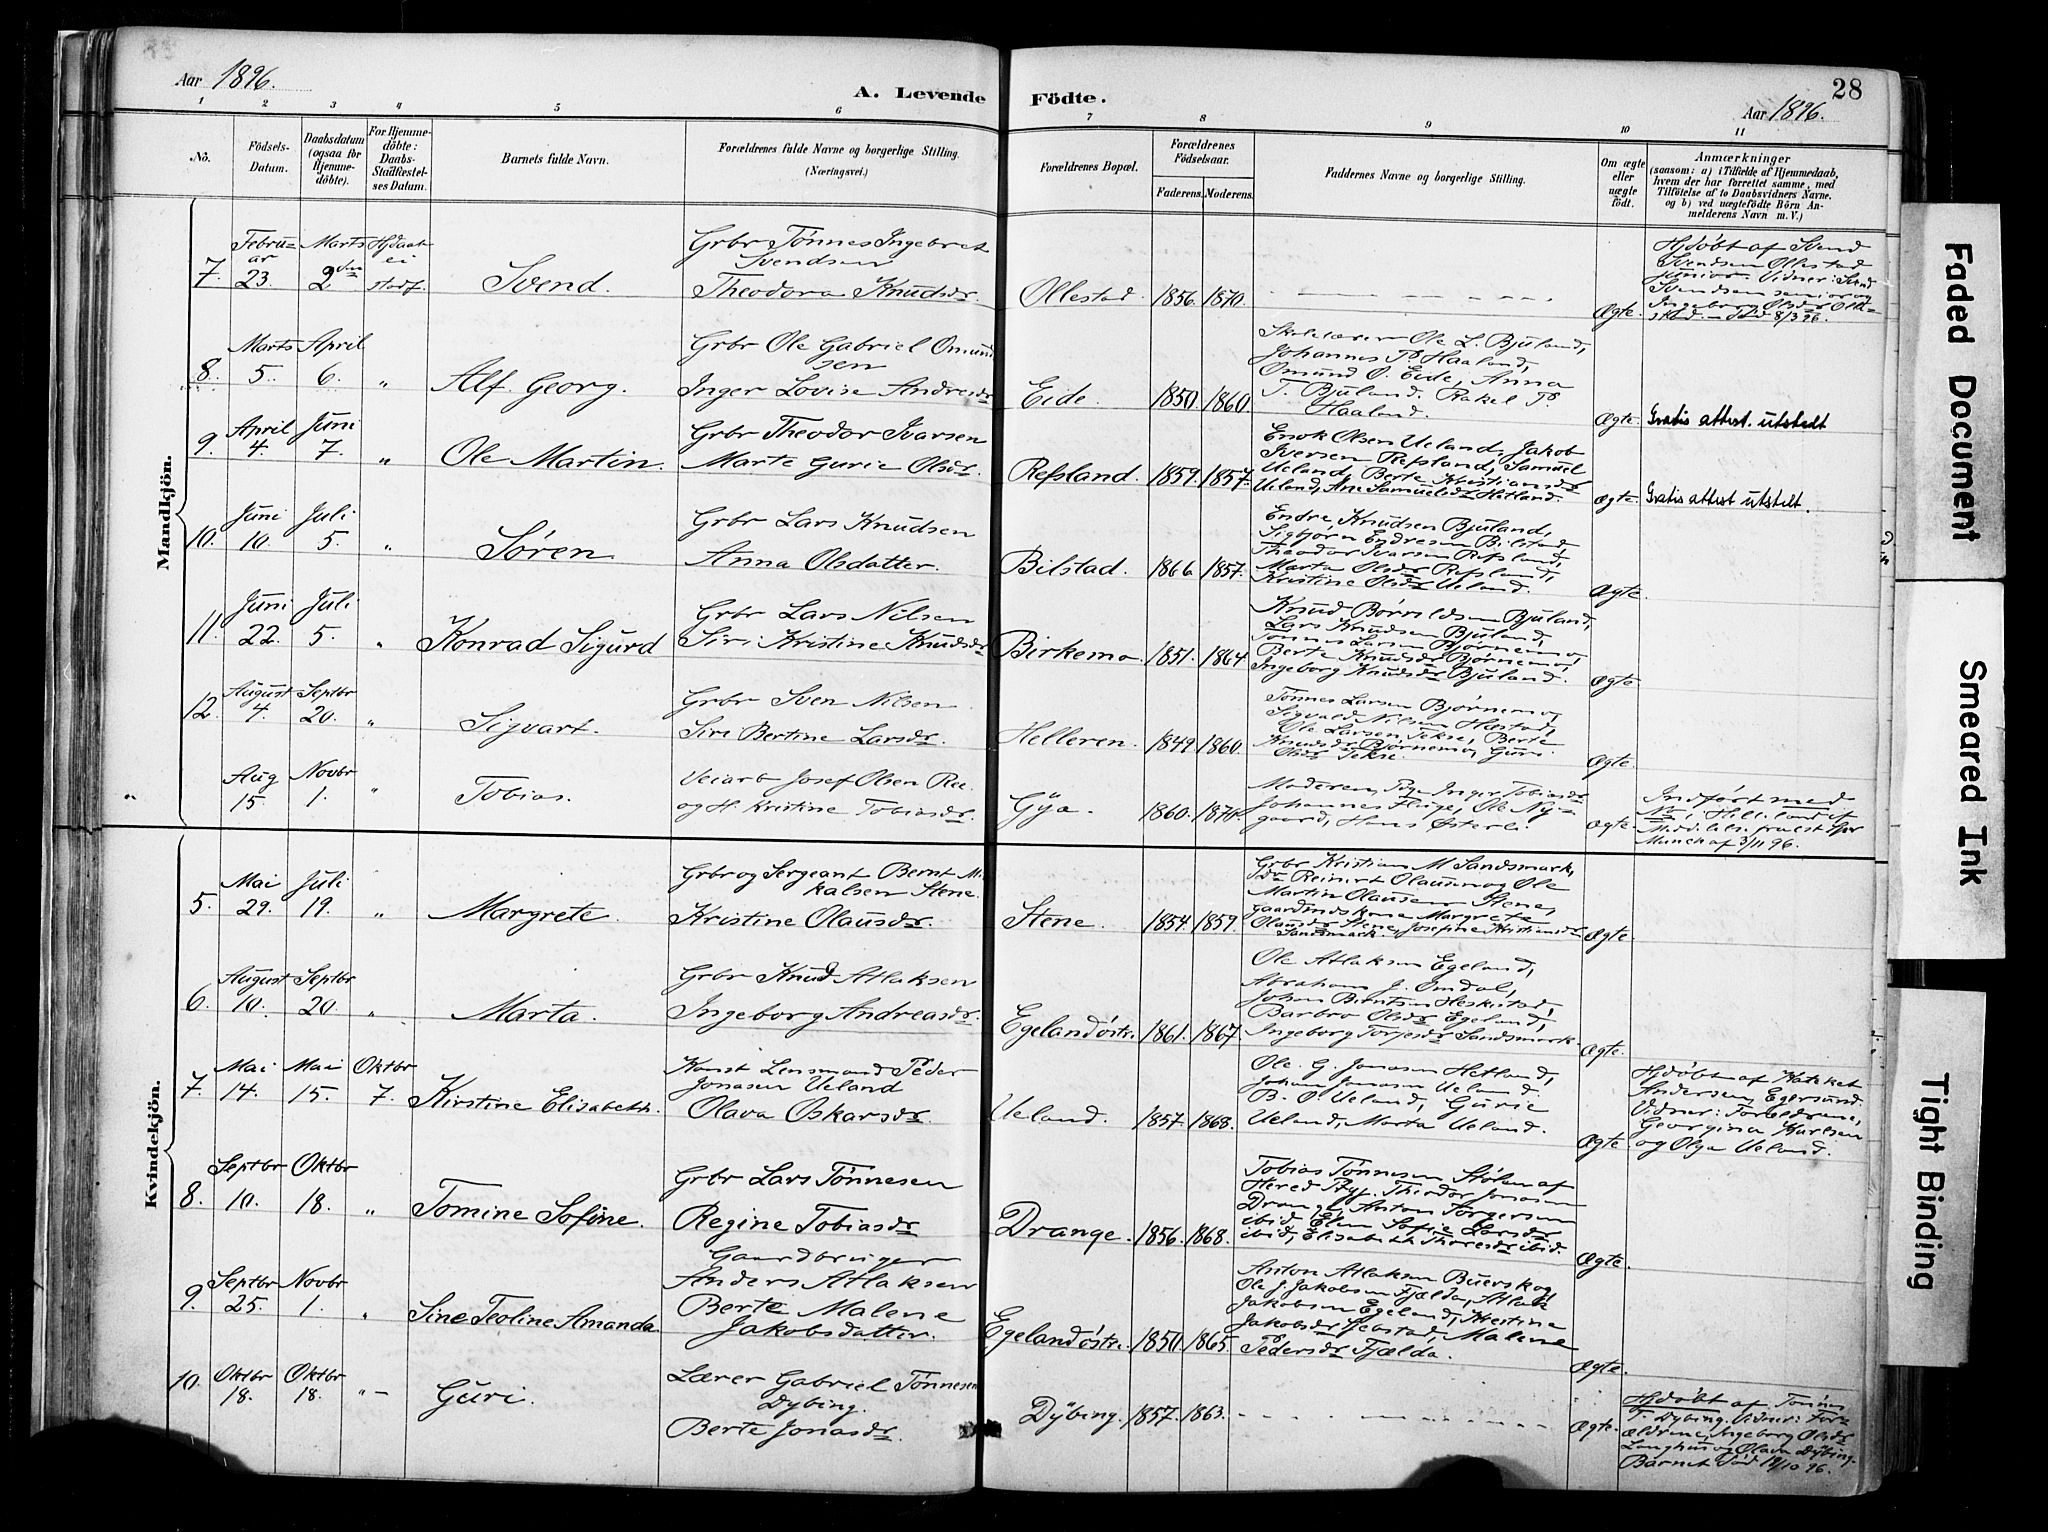 Aar 1896.
A. Levende Födte.
28
Aar 1896.
1 2 3 4 5 6 7 8 9 10 11
No.
Födsels-
Datum.
Daabsdatum
(ogsaa for
Hjemme-
döbte).
For Hjemme-
döbte:
Daabs-
Stadfæstel-
ses Datum.
Barnets fulde Navn.
Forældrenes fulde Navne og borgerlige Stilling.
(Næringsvei.)
Forældrenes Bopæl.
Forældrenes
Födselsaar.
Faderens. Moderens.
Faddernes Navne og borgerlige Stilling.
Om ægte
eller
uægte
födt.
Anmærkninger
(saasom: a) i Tilfælde af Hjemmedaab,
hvem der har forrettet samme, med
Tilföielse af to Daabsvidners Navne.
og b) ved uægtefödte Börn An-
melderens Navn m. V.)
Mandkjön.
7.
Febru-
ar
23.
Marts
2den
Hjdaab
ei
stadf.
Svend.
Grbr Tönnes Ingebret
Svendsen
Theodora Knudsdr
Ollestad. 1856. 1870.
Ægte.
Hjdöbt af Svend
Svendsen Ollestad
junior. Vidner: Svend
Svendsen senior og
Ingeborg Olsdr Olle-
stad. – Död 8/3 96.
8.
Marts
5.
April
6.
"
Alf Georg.
Grbr Ole Gabriel Omund
sen
Inger Lovise Andreasdr
Eide. 1850. 1860.
Skolelærer Ole L. Bjuland,
Johannes P. Haaland,
Omund O. Eide, Anna
T. Bjuland. Rakel P.
Haaland.
Ægte.
Gratis attest. utstedt
9.
April
4.
Juni
7.
"
Ole Martin.
Grbr Theodor Ivarsen
Marte Gurie Olsdr.
Refsland. 1859. 1857.
Enok Olsen Ueland, Jakob
Iversen Refsland, Samuel
Ueland, Berte Kristiansdr
Ueland, Ane Samuelsdr Hetland.
Ægte.
Gratis attest utstelt.
10.
Juni
10.
Juli
5.
"
Sören
Grbr Lars Knudsen
Anna Olsdatter.
Bilstad. 1866. 1857.
Endre Knudsen Bjuland,
Sigbjörn Endresen Bilstad
Theodor Ivarsen Refsland,
Marta Olsdr Refsland,
Kristine Olsdr Ueland.
Ægte.
11.
Juni
22.
Juli
5.
"
Konrad Sigurd
Grbr Lars Nilsen
Siri Kristine Knudsdr
Birkemo. 1851. 1864.
Knud Börildsen Bjuland,
Lars Knudsen Bjuland,
Tönnes Larsen Björnemo,
Berte Knudsdr Björnemo,
Ingeborg Knudsdr Bjuland.
Ægte.
12.
August
4.
Septbr
20.
"
Sigvart.
Grbr Sven Nilsen
Siri Bertine Larsdr.
Helleren. 1849. 1860.
Tönnes Larsen Björnemo,
Sigvald Nilsen Hæstad,
Ole Larsen Tekse, Berte
Knudsdr Björnemo, Guri
Olsdr Tekse.
Ægte.
"
Aug
15.
Novbr
1.
"
Tobias.
Veiarb Josef Olsen Ree
og H. Kristine Tobiasdr.
Gÿa. 1860. 1870.
Moderen, Pige Inger Tobiasdr
Johannes Flige, Ole Ny-
gaard, Hans Österli.
Ægte.
Indfört med
af
Munch af 3/11 96.
Kvindekjön.
5.
Mai
29.
Juli
19.
"
Margrete.
Grbr og Sergeant Bernt Mi
kalsen Stene.
Kristine Olausdr.
Stene. 1854. 1859.
Grbr Kristian M Sandsmark,
Reinert Olausen og Ole
Martin Olausen Stene,
Gaardmandskone Margrete
Olausdr Stene, Josefine Kristiansdr
Sandsmark.
Ægte.
6.
August
10.
Septbr
20.
"
Marta.
Grbr Knud Atlaksen
Ingeborg Andreasdr.
Egeland östr. 1861. 1867.
Ole Atlaksen Egeland,
Abraham J. Omdal,
Johan Berntsen Heskestad,
Barbro Olsdr Egeland,
Ingeborg Torjesdr Sandsmark.
Ægte.
7.
Mai
14.
Mai
15.
Oktbr
7.
Kirstine Elisabeth.
Konst Lensmand Peder
Jonasen Ueland
Olava Oskarsdr.
Ueland. 1857. 1868.
Ole. G. Jonasen Hetland,
Johan Jonasen Ueland.
B. O Ueland, Gurie
Ueland, Marta Ueland.
Ægte.
Hjdöbt af Kateket
Andersen, Egersund.
Vidner: Forældrene,
Georgina Karlsen
og Olga Ueland.
8.
Septbr
10.
Oktbr
18.
"
Tomine Sofine.
Grbr Lars Tönnesen
Regine Tobiasdr
Drange. 1856. 1868.
Tobias Tönnesen Stölen af
Hered Pgj. Theodor Jonasen
Drange, Anton Torgersen
ibid, Elen Sofie Larsdr
ibid, Elisabeth Thoresdr ibid.
Ægte.
9.
Septbr
25.
Novbr
1.
"
Sine Teoline Amanda.
Gaardbruger
Anders Atlaksen
Berte Malene
Jakobsdatter.
Egeland östr. 1850. 1865.
Anton Atlaksen Buerskog
Ole J. Jakobsen Fjælda, Atlak
Jakobsen Egeland, Kjerstine
Jakobsdr Malene
Pedersdr Fjælda.
Ægte.
10.
Oktbr
18.
Oktbr
18.
"–
Guri.
Lærer Gabriel Tönnesen
Dybing.
Berte Jonasdr.
Dÿbing. 1857. 1863.
Ægte.
Hjdöbt af Tönnes
T. Dybing. Vidner: For-
ældrene, Ingeborg Olsdr
Langhus og Olava Dÿbing.
Barnet död 19/10 96.
Faded Document
Smeared Ink
Tight Binding